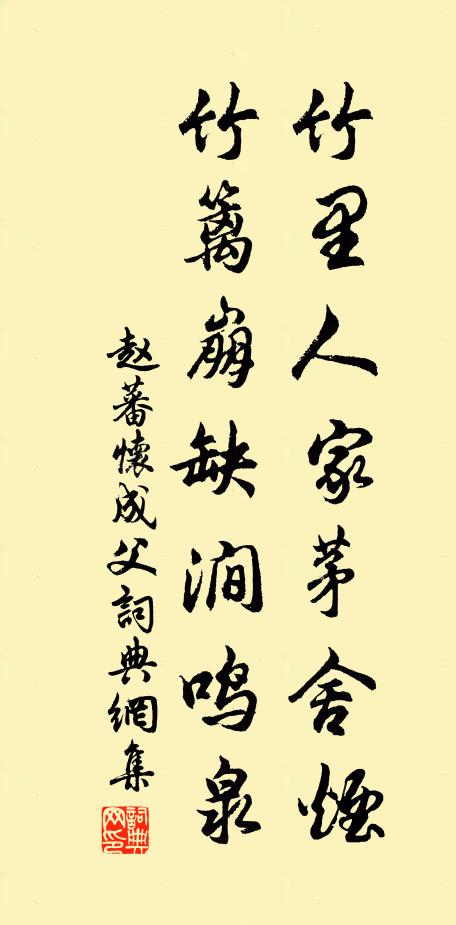 竹里人家茅舍煙
竹篱崩缺涧鸣泉
赵蕃懷成父詞典網集
詞典
网印